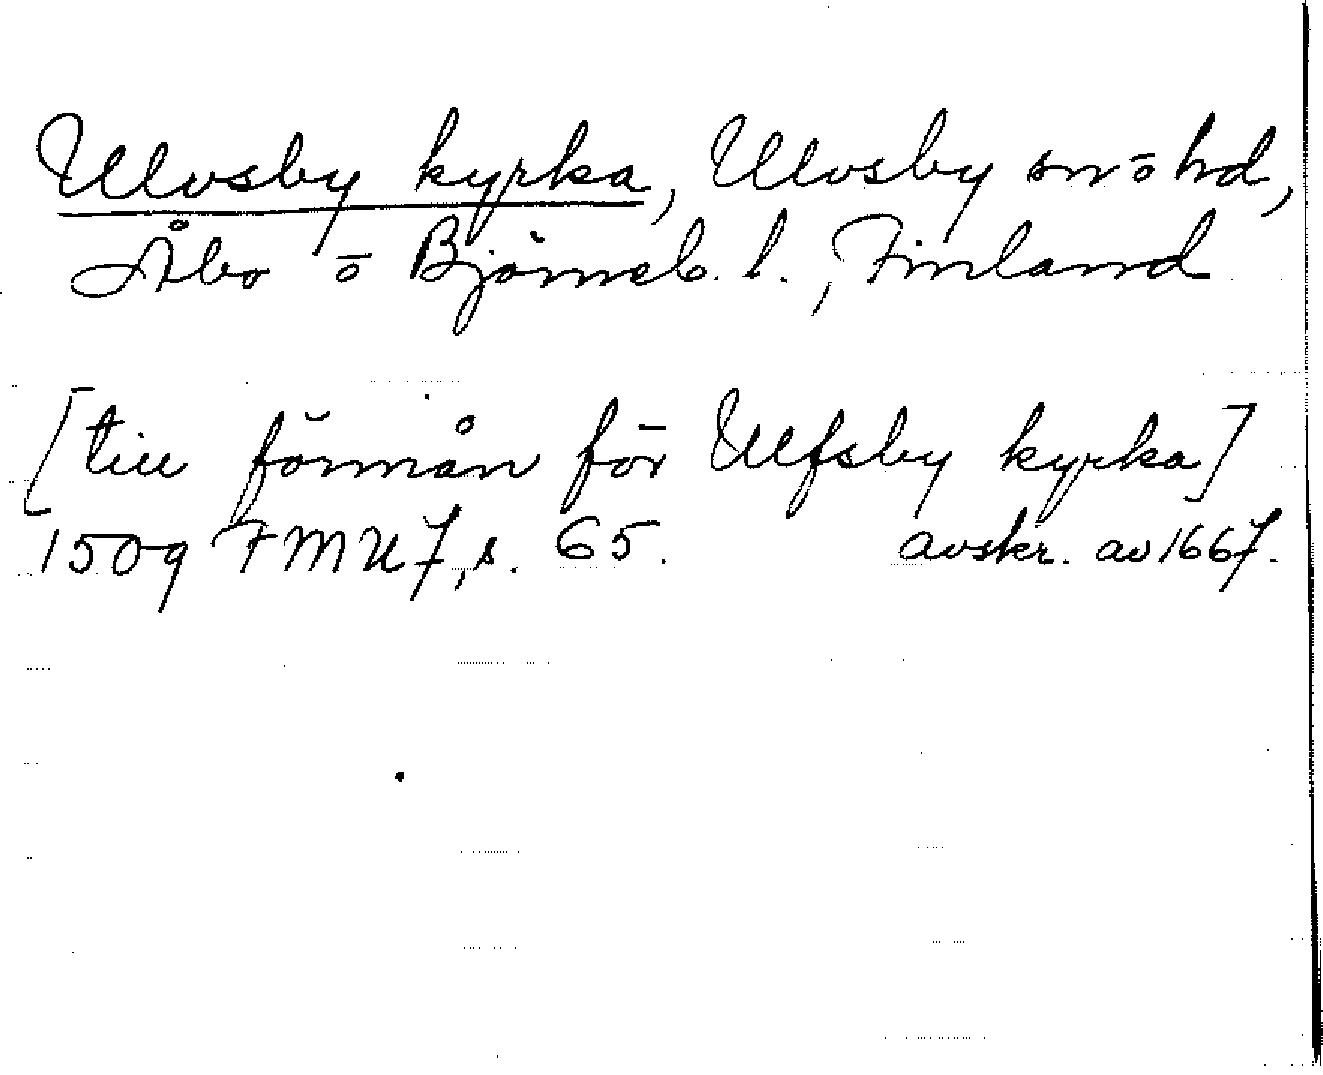 Ulvsby kyrka, Ulvsby sn o hd,
Åbo o Björneb. l., Finland
[till förmån för Ulfsby kyrka]
1509 FMU 7, s. 65. avskr. av 1667.